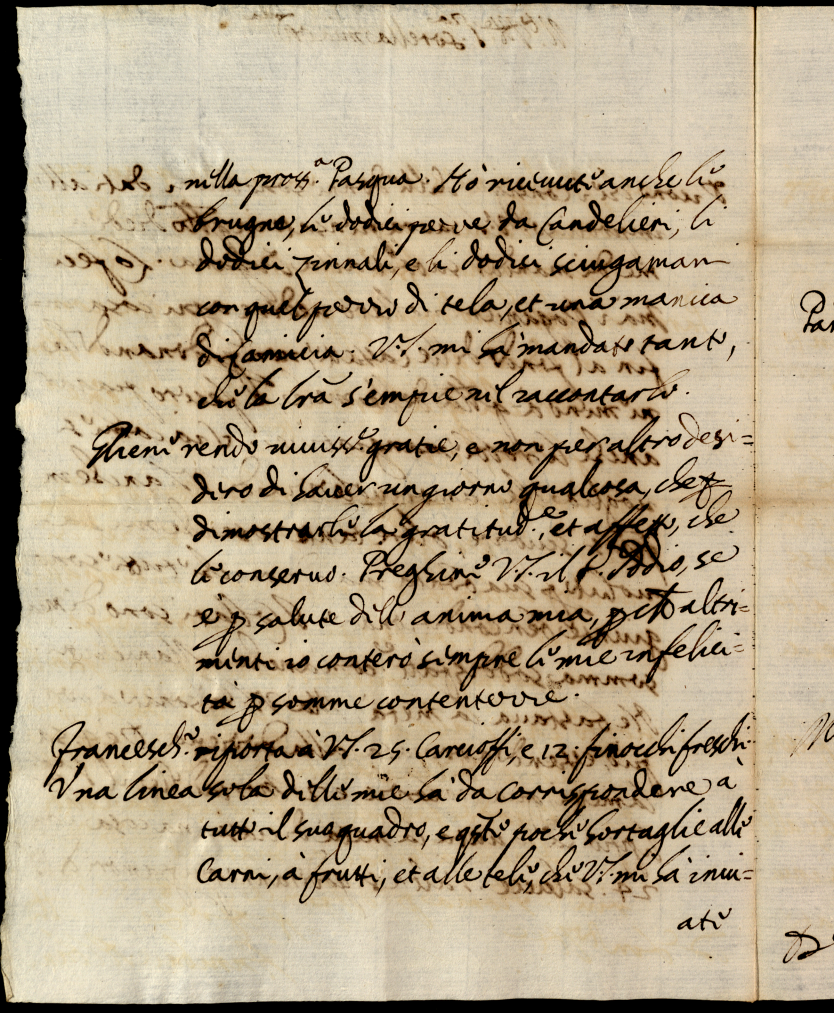 nella pross.ª Pasqua. Hò riceuute anche le
brugne, le dodici perve da Candelieri, li
dodici zinnali, e li dodici sciugamani
con quel pezzo di tela, et una manica
di Camicia. V.S. mi hà mandate tante,
che la lrã s'empie nel raccontarle.
Gliene rendo uiuiss.e gratie, e non per altro desi=
dero di hauer un giorno qualcosa, che p
dimostrarle la gratitud.e, et affetto, che
le conseruo. Preghine V.S. il S. Iddio, se
è p salute dell'anima mia, p che altri=
menti io conterò sempre le mie infelici=
tà p somme contentezze.
Francesch.o riporta à V.S. 25. Carcioffi, e 12. finocchi freschi.
Vna linea sola delle mie hà da corrispondere à
tutto il suo quadro, e qste poche hortaglie alle
Carni, à frutti, et alle tele, che V.S. mi hà inui=
ate
Par